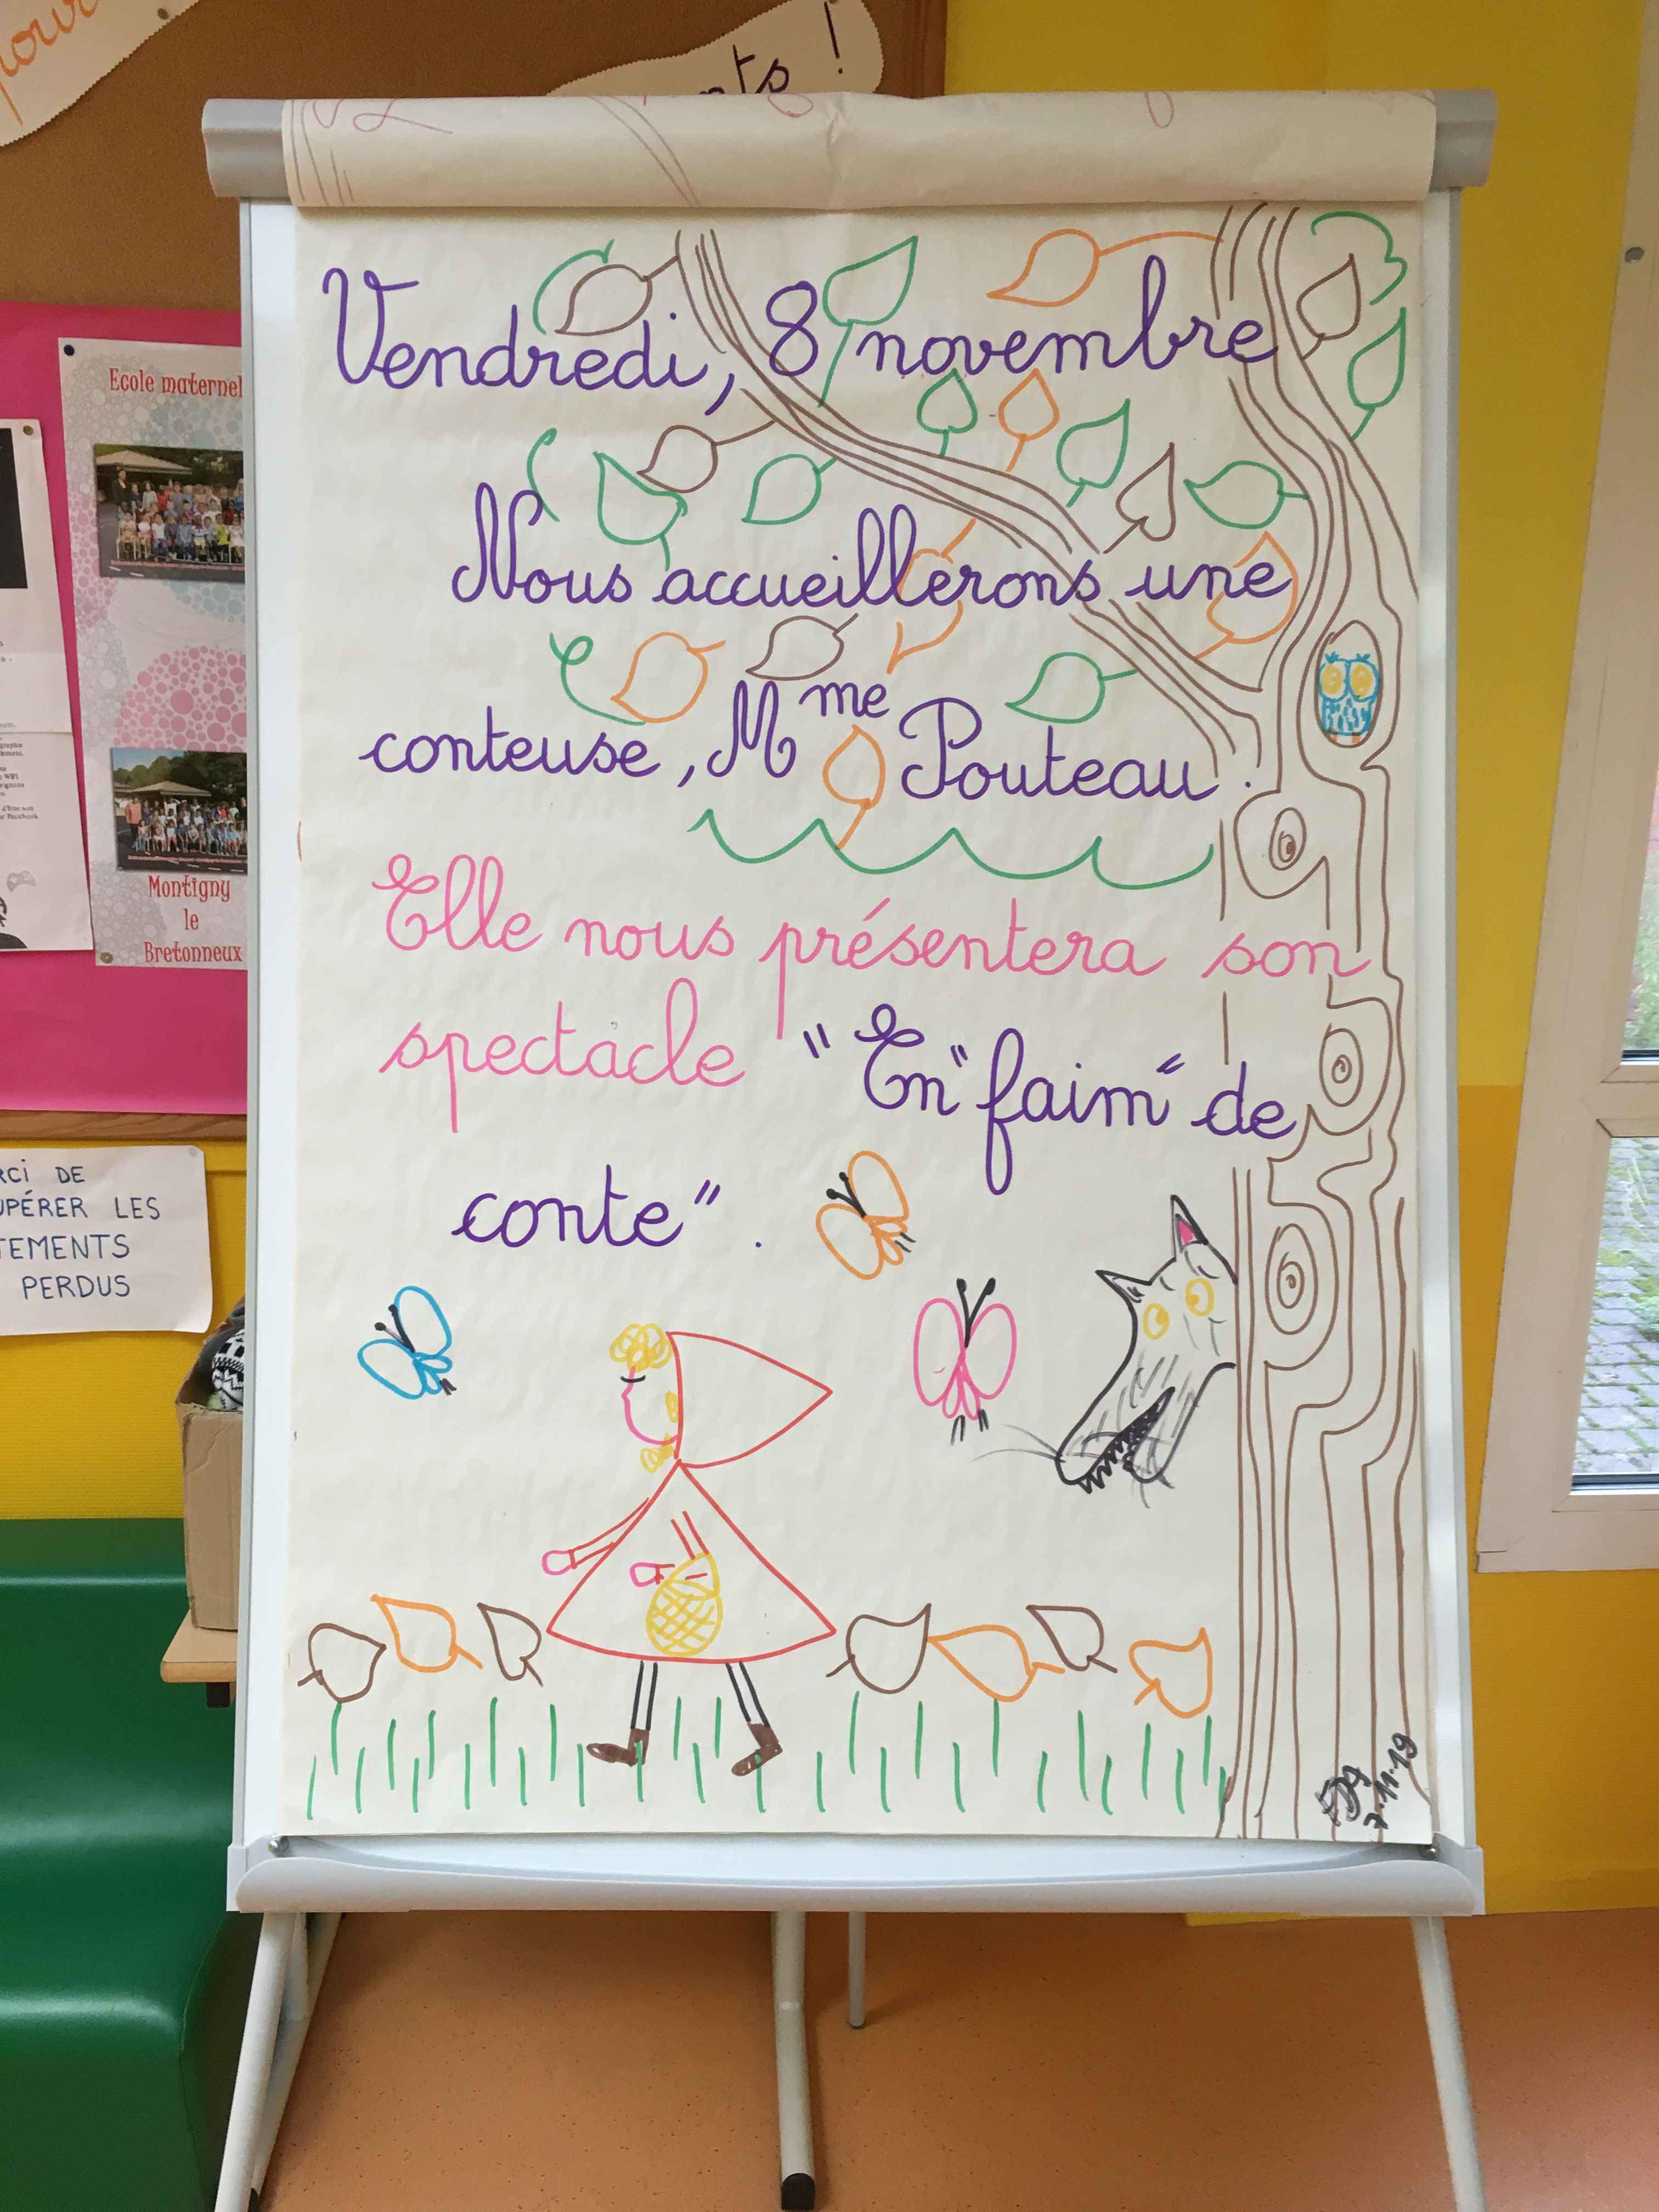 pour
nts !
Vendredi, 8 novembre
Nous accueillerons une
conteuse, Mme Pouteau.
Elle nous présentera son
spectacle "En "faim" de
conte".
7.11.19
Ecole maternel
Montigny
le
Bretonneux
RCI DE
UPÉRER LES
TEMENTS
PERDUS